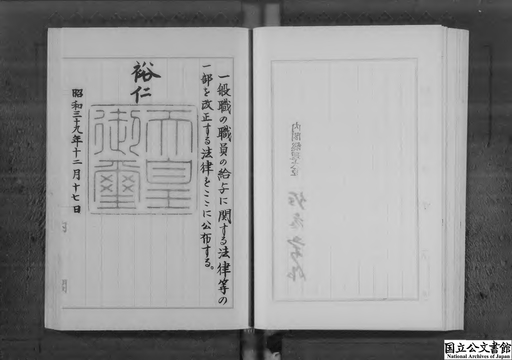 一般職の職員の給与に関する法律等の
一部を改正する法律をここに公布する。
裕仁
天皇御璽
昭和三十九年十二月十七日
国立公文書館
National Archives of Japan